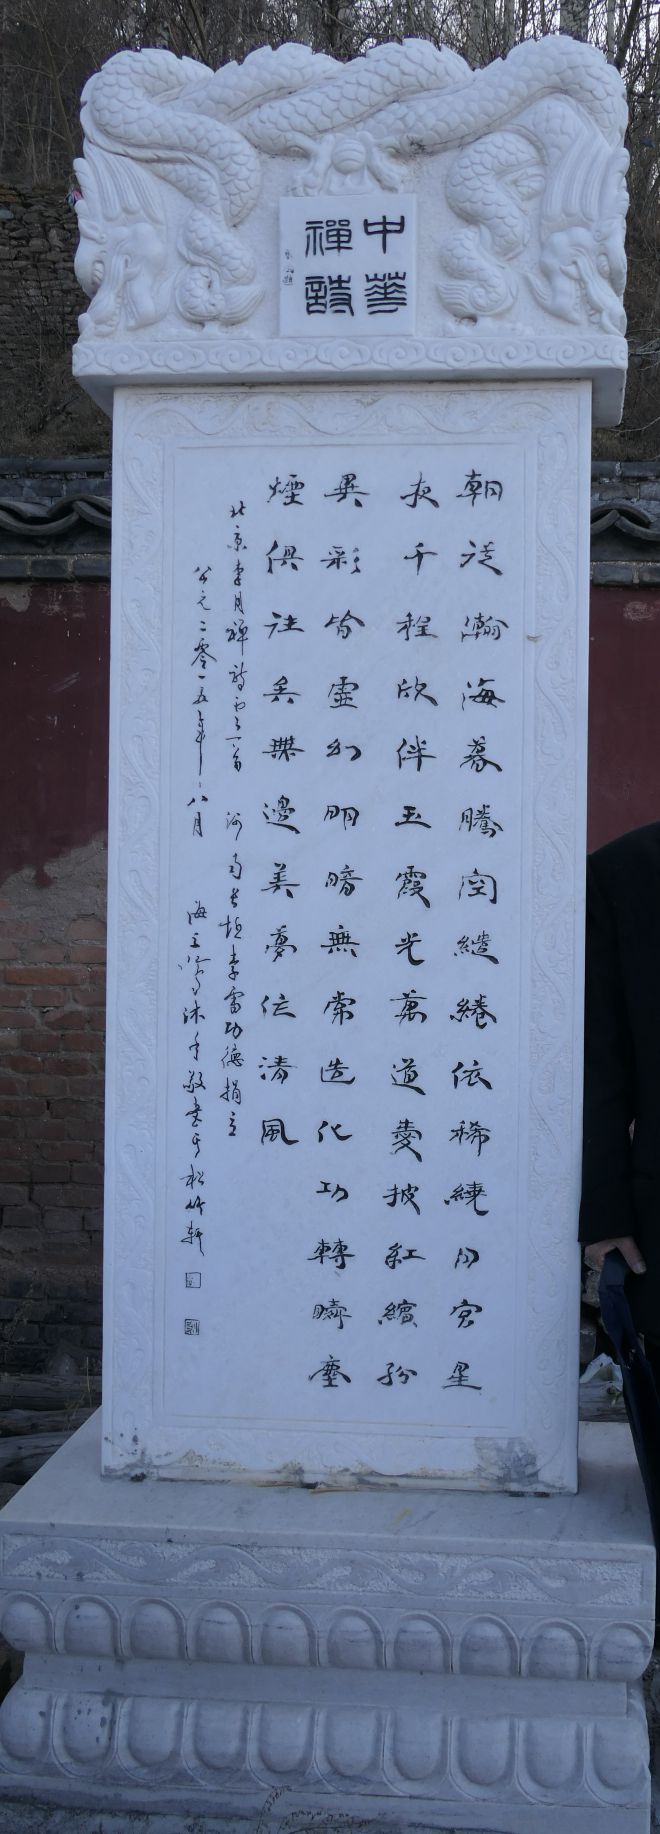 中華
禪詩
朝從瀚海暮騰空繾綣依稀繞月宮星
夜千程欣伴玉霞光萬道愛披紅繽紛
異彩皆靈幻明暗無常造化功轉瞬塵
煙俱往矣無邊美夢任清風
北京 月禪詩 一首 河南 李雷功德捐立
公元二零一五年八月 海 沐手敬書於松竹軒